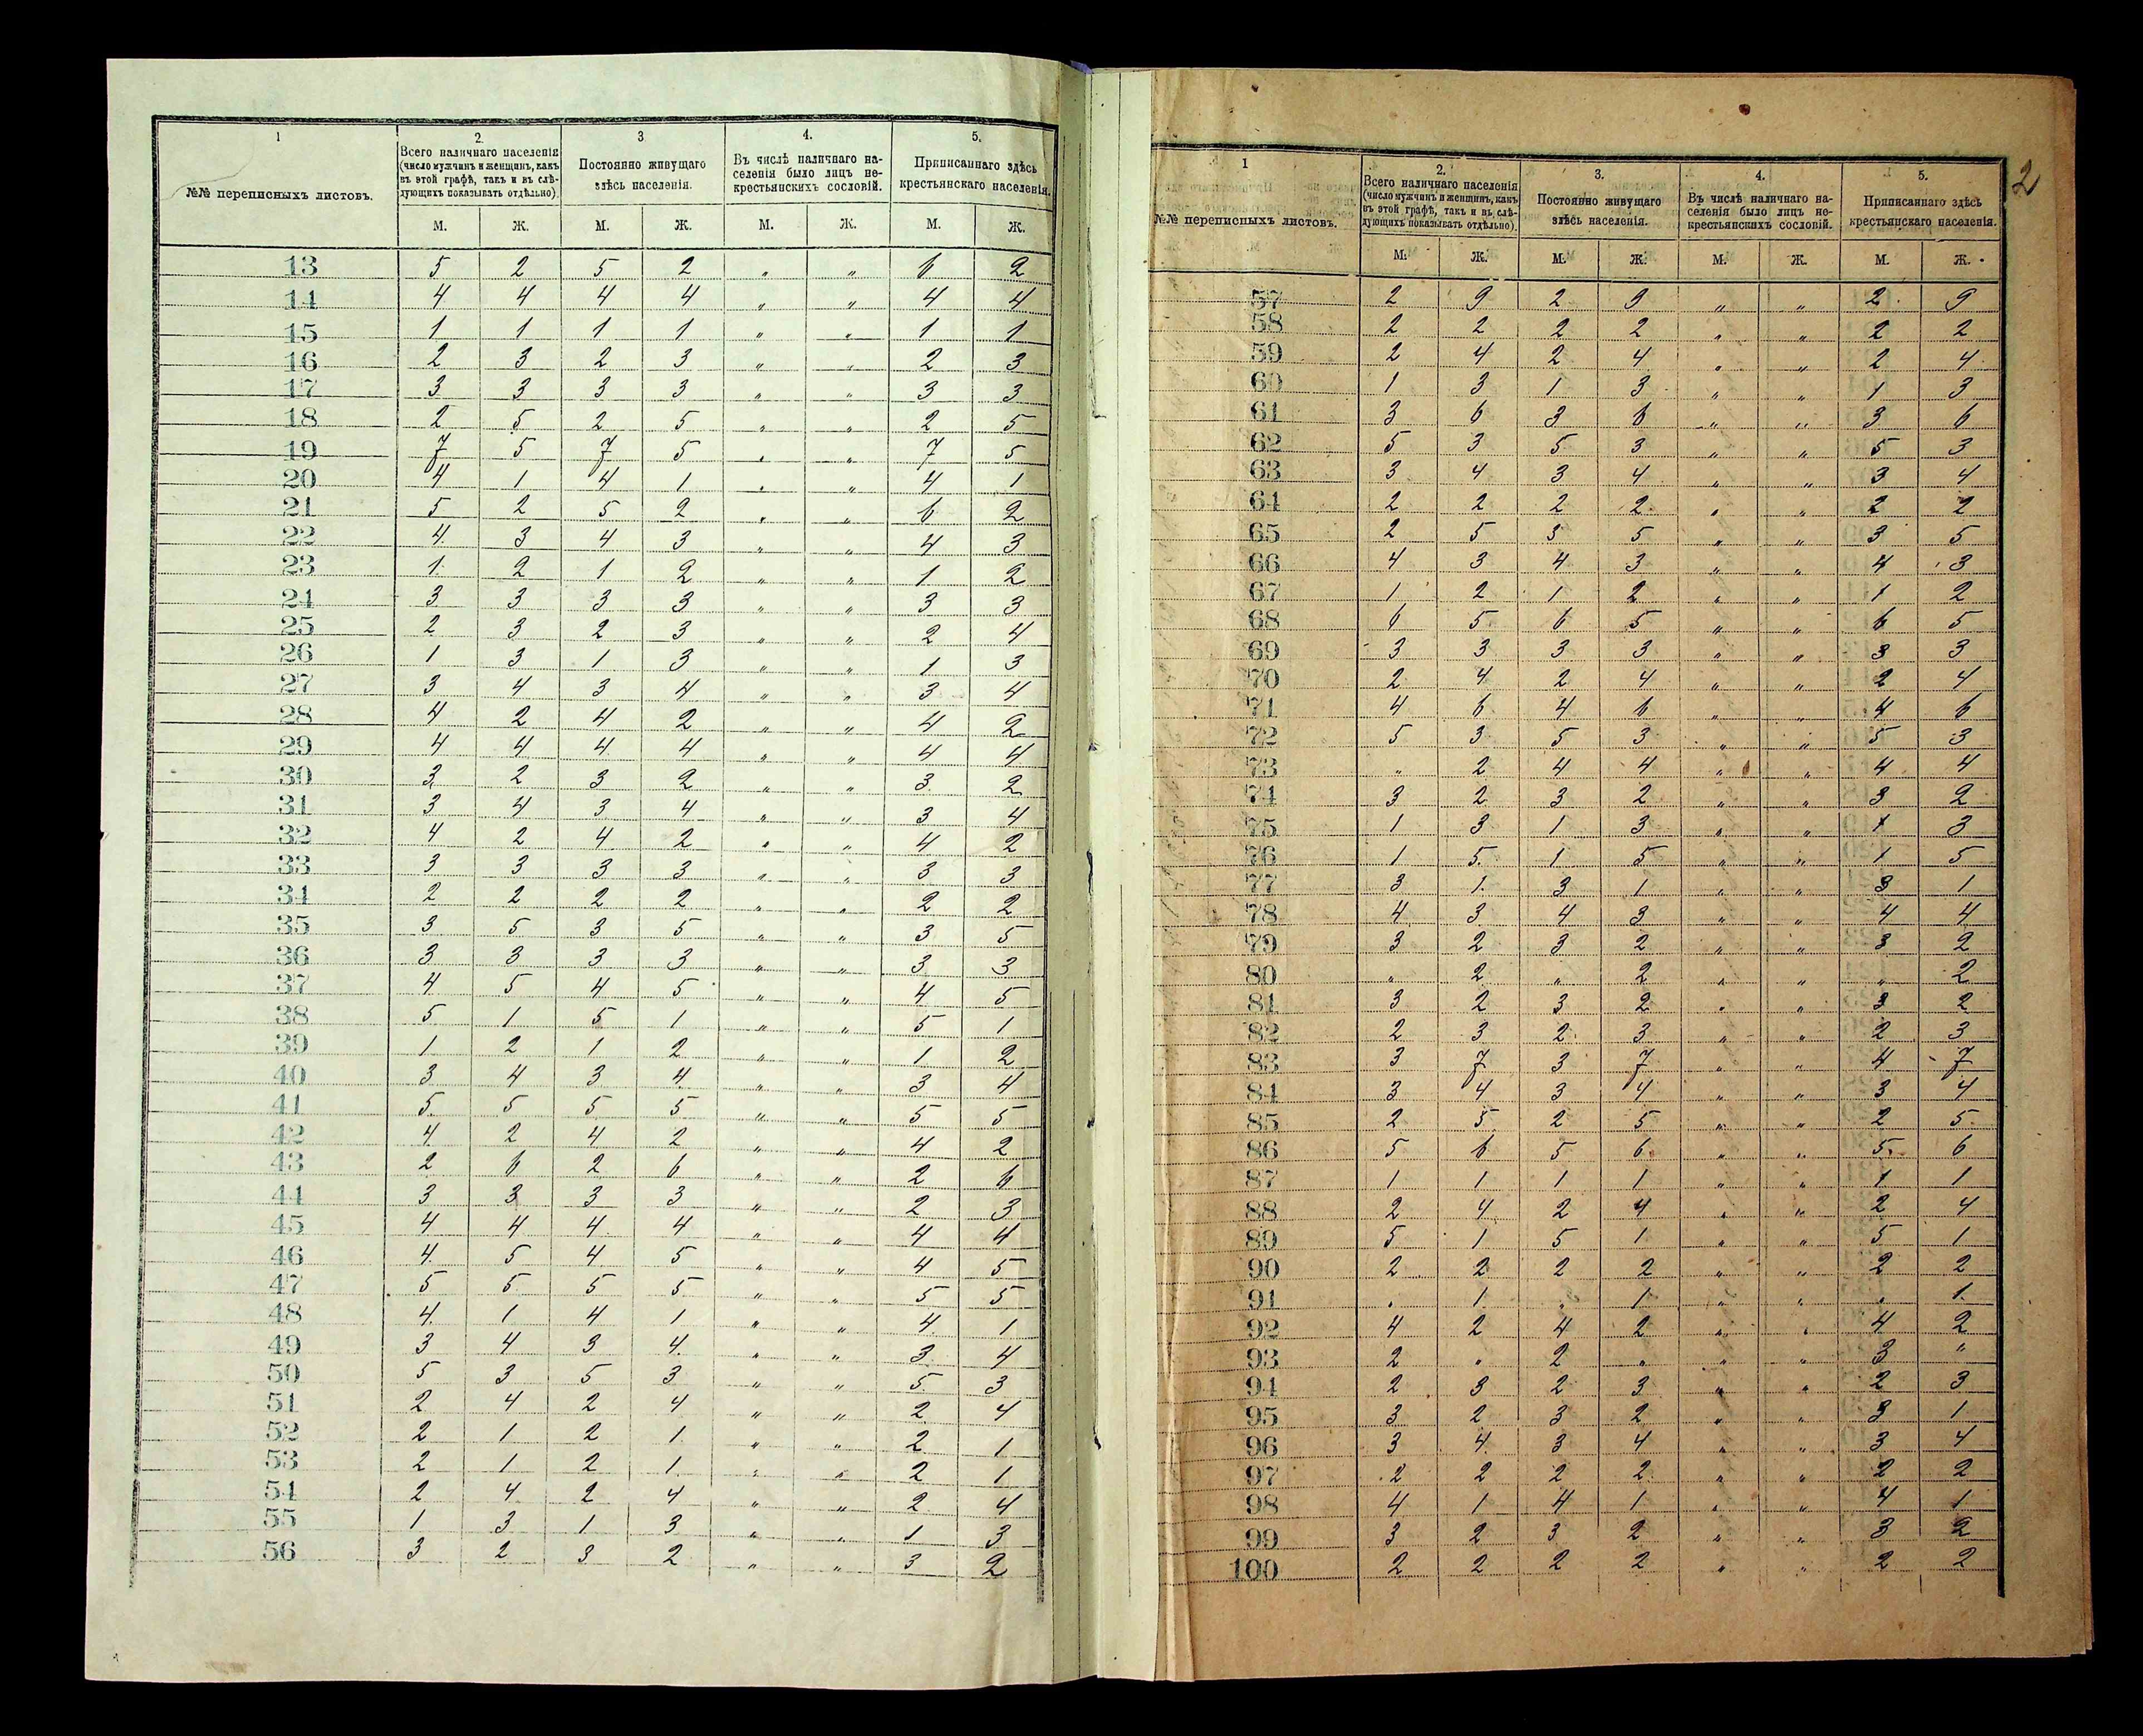 1 2. 3 4. 5.
№№ переписныхъ листовъ. Всего наличнаго населенія (число мужчинъ и женщинъ, какъ въ этой графѣ, такъ и въ слѣдующихъ показывать отдѣльно). Постоянно живущаго здѣсь населенія. Въ числѣ наличнаго населенія было лицъ некрестьянскихъ сословій. Приписаннаго здѣсь крестьянскаго населенія.
М. Ж. М. Ж. М. Ж. М. Ж.
13 5 2 5 2 „ „ 6 2
14 4 4 4 4 „ „ 4 4
15 1 1 1 1 „ „ 1 1
16 2 3 2 3 „ „ 2 3
17 3 3 3 3 „ „ 3 3
18 2 5 2 5 „ „ 2 5
19 7 5 7 5 „ „ 7 5
20 4 1 4 1 „ „ 4 1
21 5 2 5 2 „ „ 6 2
22 4 3 4 3 „ „ 4 3
23 1 2 1 2 „ „ 1 2
24 3 3 3 3 „ „ 3 3
25 2 3 2 3 „ „ 2 4
26 1 3 1 3 „ „ 1 3
27 3 4 3 4 „ „ 3 4
28 4 2 4 2 „ „ 4 2
29 4 4 4 4 „ „ 4 4
30 3 2 3 2 „ „ 3 2
31 3 4 3 4 „ „ 3 4
32 4 2 4 2 „ „ 4 2
33 3 3 3 3 „ „ 3 3
34 2 2 2 2 „ „ 2 2
35 3 5 3 5 „ „ 3 5
36 3 3 3 3 „ „ 3 3
37 4 5 4 5 „ „ 4 5
38 5 1 5 1 „ „ 5 1
39 1 2 1 2 „ „ 1 2
40 3 4 3 4 „ „ 3 4
41 5 5 5 5 „ „ 5 5
42 4 2 4 2 „ „ 4 2
43 2 6 2 6 „ „ 2 6
44 3 3 3 3 „ „ 2 3
45 4 4 4 4 „ „ 4 4
46 4 5 4 5 „ „ 4 5
47 5 5 5 5 „ „ 5 5
48 4 1 4 1 „ „ 4 1
49 3 4 3 4 „ „ 3 4
50 5 3 5 3 „ „ 5 3
51 2 4 2 4 „ „ 2 4
52 2 1 2 1 „ „ 2 1
53 2 1 2 1 „ „ 2 1
54 2 4 2 4 „ „ 2 4
55 1 3 1 3 „ „ 1 3
56 3 2 3 2 „ „ 3 2
2
1 2. 3. 4. 5.
№№ переписныхъ листовъ. Всего наличнаго населенія (число мужчинъ и женщинъ, какъ въ этой графѣ, такъ и въ слѣдующихъ показывать отдѣльно). Постоянно живущаго здѣсь населенія. Въ числѣ наличнаго населенія было лицъ некрестьянскихъ сословій. Приписаннаго здѣсь крестьянскаго населенія.
М. Ж. М. Ж. М. Ж. М. Ж.
57 2 9 2 9 „ „ 2 9
58 2 2 2 2 „ „ 2 2
59 2 4 2 4 „ „ 2 4
60 1 3 1 3 „ „ 1 3
61 3 6 3 6 „ „ 3 6
62 5 3 5 3 „ „ 5 3
63 3 4 3 4 „ „ 3 4
64 2 2 2 2 „ „ 2 2
65 2 5 3 5 „ „ 3 5
66 4 3 4 3 „ „ 4 3
67 1 2 1 2 „ „ 1 2
68 6 5 6 5 „ „ 6 5
69 3 3 3 3 „ „ 3 3
70 2 4 2 4 „ „ 2 4
71 4 6 4 6 „ „ 4 6
72 5 3 5 3 „ „ 5 3
73 „ 2 4 4 „ „ 4 4
74 3 2 3 2 „ „ 3 2
75 1 3 1 3 „ „ 1 3
76 1 5 1 5 „ „ 1 5
77 3 1 3 1 „ „ 3 1
78 4 3 4 3 „ „ 4 4
79 3 2 3 2 „ „ 3 2
80 „ 2 „ 2 „ „ „ 2
81 3 2 3 2 „ „ 3 2
82 2 3 2 3 „ „ 2 3
83 3 7 3 7 „ „ 4 7
84 3 4 3 4 „ „ 3 4
85 2 5 2 5 „ „ 2 5
86 5 6 5 6 „ „ 5 6
87 1 1 1 1 „ „ 1 1
88 2 4 2 4 „ „ 2 4
89 5 1 5 1 „ „ 5 1
90 2 2 2 2 „ „ 2 2
91 „ 1 „ 1 „ „ „ 1
92 4 2 4 2 „ „ 4 2
93 2 „ 2 „ „ „ 3 „
94 2 3 2 3 „ „ 2 3
95 3 2 3 2 „ „ 3 1
96 3 4 3 4 „ „ 3 4
97 2 2 2 2 „ „ 2 2
98 4 1 4 1 „ „ 4 1
99 3 2 3 2 „ „ 3 2
100 2 2 2 2 „ „ 2 2